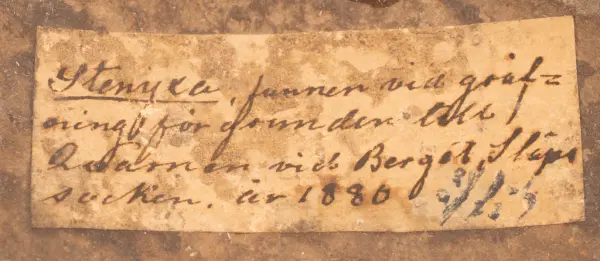 Stenyxa, funnen vid gräf=
ning för grunden till
Qvarnen vid Berget, Släps
socken, år 1880